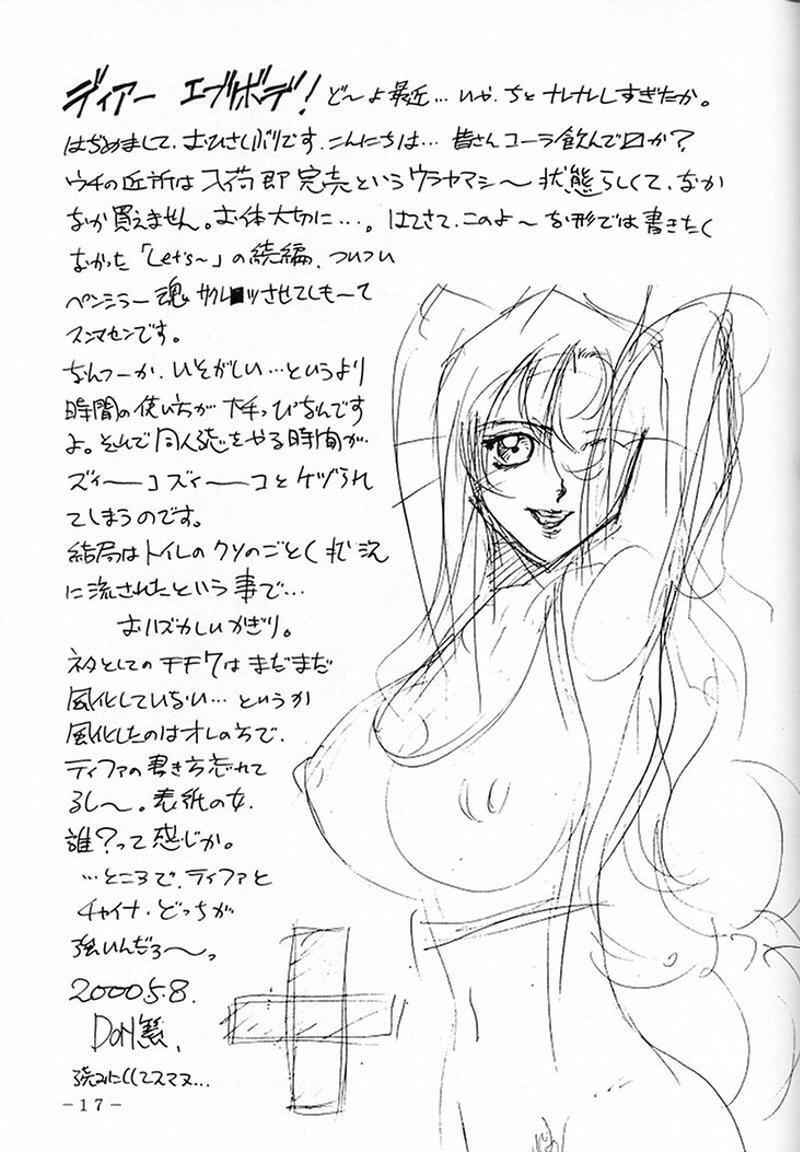 ディアー エブリボデ！ ど〜よ最近…いや、ちとナレナレしすぎたか。
はぢめまして、おひさしぶりです、こんにちは… 皆さんコーラ飲んで
ウチの近所は入荷即完売というウラヤマシ〜状態らしくて、なか
なか買えません。お体大切に…。はてさて、このよ〜な形では書きたく
なかった「Let's〜」の続編、ついつい
ペンシラー魂 させてしも〜て
スンマセンです。
なんつーか、いそがしい…というより
時間の使い方が なんです
よ。そんで同人誌をやる時間が
ズィーーコズィーーコとケヅられ
てしまうのです。
結局はトイレのクソのごとく状況
に流されたという事で…
おハズかしいかぎり。
ネタとしてのFF7はまだまだ
風化していない…というか
風化したのはオレの方で、
ティファの書き方忘れて
るし〜。表紙の女、
誰？って感じか。
…ところで、ティファと
チャイナ、どっちが
強いんだろ〜っ
2000 5.8.
DON繁
読みにくくてスマヌ…
-17-